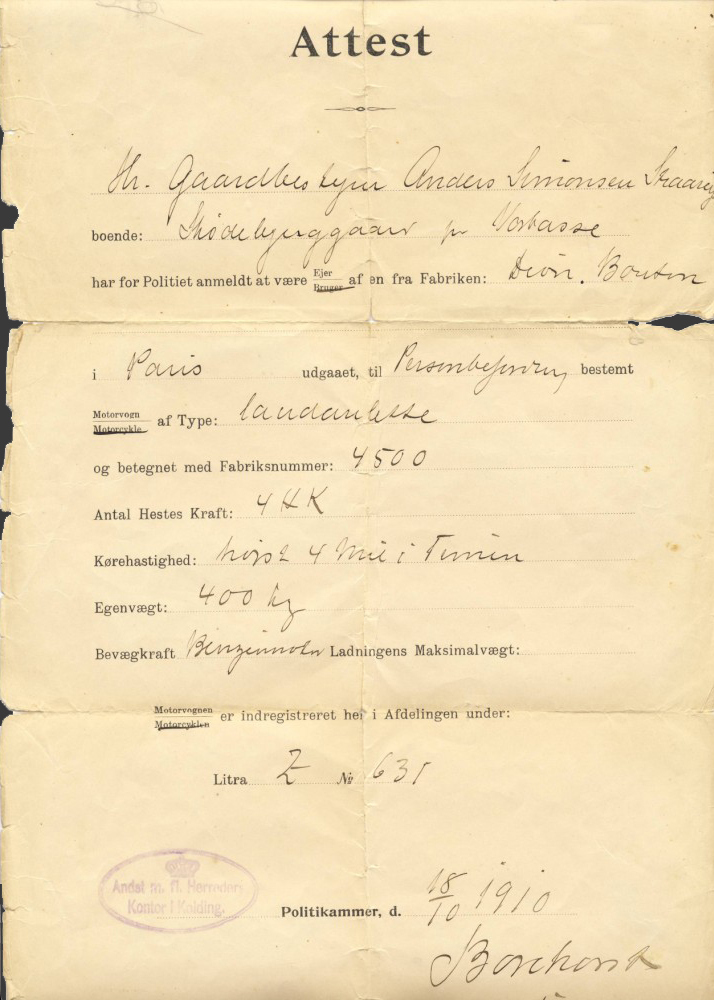 Attest
Hr. Gaardbestyrer Anders Simonsen
boende: Sködebjerggaard pr Vorbasse
har for Politiet anmeldt at være Ejer Bruger af en fra Fabriken: Dion. Bouton
i Paris udgaaet, til Personbefordring bestemt
Motorvogn Motorcykle af Type: landaulette
og betegnet med Fabriksnummer: 4500
Antal Hestes Kraft: 4 HK
Kørehastighed: højst 4 Mil i Timen
Egenvægt: 400 kg
Bevægkraft Benzinmotor Ladningens Maksimalvægt:
Motorvognen Motorcyklen er indregistreret her i Afdelingen under:
Litra Z Nr 631
Andst m. fl. Herreders
Kontor i Kolding.
Politikammer, d. 18/10 1910
Borchorst